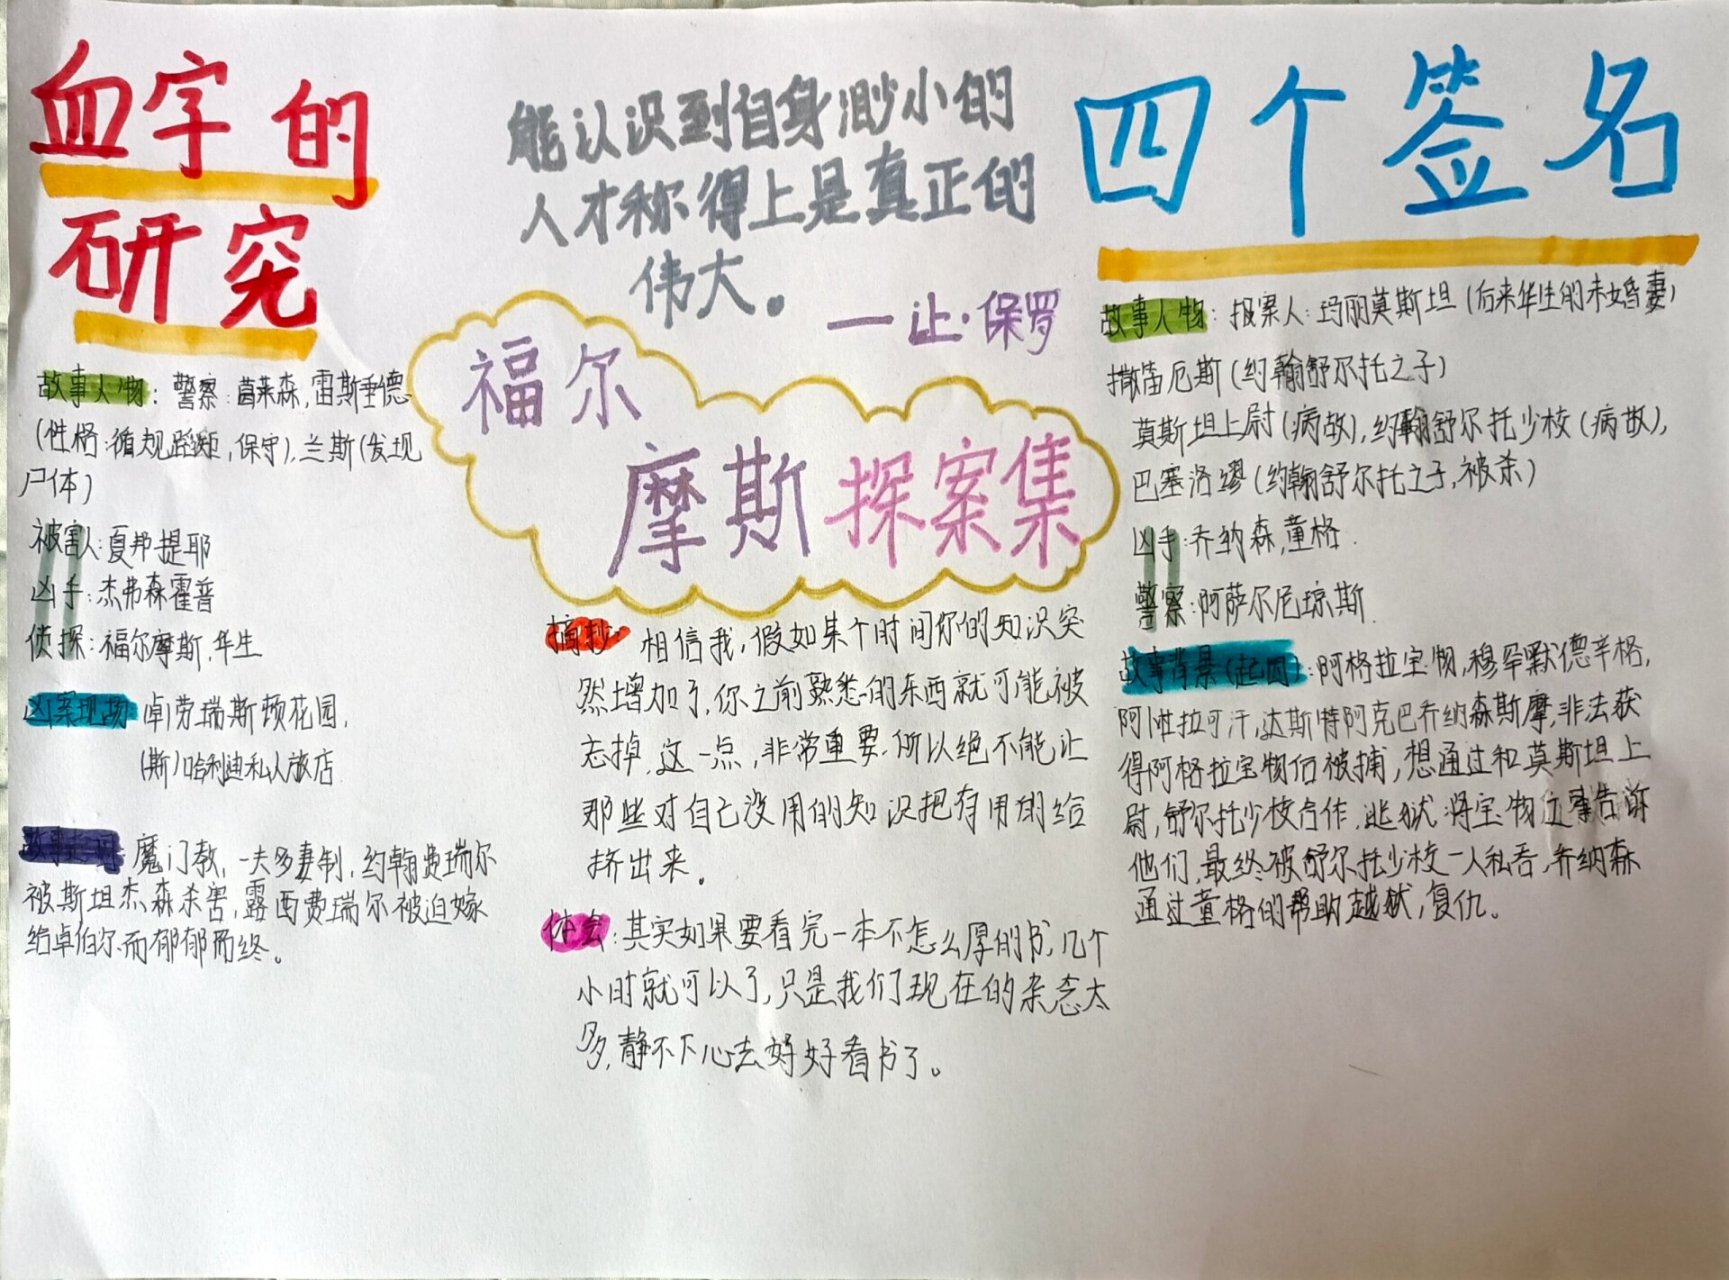 血字的
研究
故事人物：警察：葛莱森，雷斯垂德
（性格：循规蹈矩，保守），兰斯（发现
尸体）
被害人：夏邦提耶
凶手：杰弗森霍普
侦探：福尔摩斯，华生
凶案现场 卓劳瑞斯顿花园，
（斯）哈利迪私人旅店
魔门教，一夫多妻制，约翰费瑞尔
被斯坦杰森杀害，露西费瑞尔被迫嫁
给卓伯尔而郁郁而终。
能认识到自身渺小的
人才称得上是真正的
伟大。
——让·保罗
福尔
摩斯探案集
摘抄：相信我，假如某个时间你的知识突
然增加了，你之前熟悉的东西就可能被
忘掉，这一点，非常重要，所以绝不能让
那些对自己没用的知识把有用的给
挤出来。
体会：其实如果要看完一本不怎么厚的书，几个
小时就可以了，只是我们现在的杂念太
多，静不下心去好好看书了。
四个签名
故事人物：报案人：玛丽莫斯坦（后来华生的未婚妻）
撒笛厄斯（约翰舒尔托之子）
莫斯坦上尉（病故），约翰舒尔托少校（病故），
巴塞洛缪（约翰舒尔托之子，被杀）
凶手：乔纳森，童格
警察：阿萨尔尼琼斯
故事背景（起因）：阿格拉宝物，穆罕默德辛格，
阿卜杜拉可汗，达斯特阿克巴乔纳森斯摩，非法获
得阿格拉宝物后被捕，想通过和莫斯坦上
尉，舒尔托少校合作，逃狱，将宝物之事告诉
他们，最终被舒尔托少校一人私吞，乔纳森
通过童格的帮助越狱，复仇。